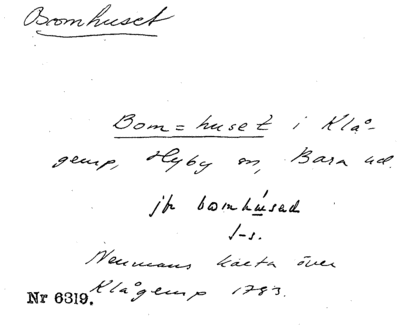 Bomhuset
Bom=huset i Klå-
gerup, Hyby sn, Bara hd.
jfr bomhúsad
1-s.
Neumans karta över
Klågerup 1783.
Nr 6319.